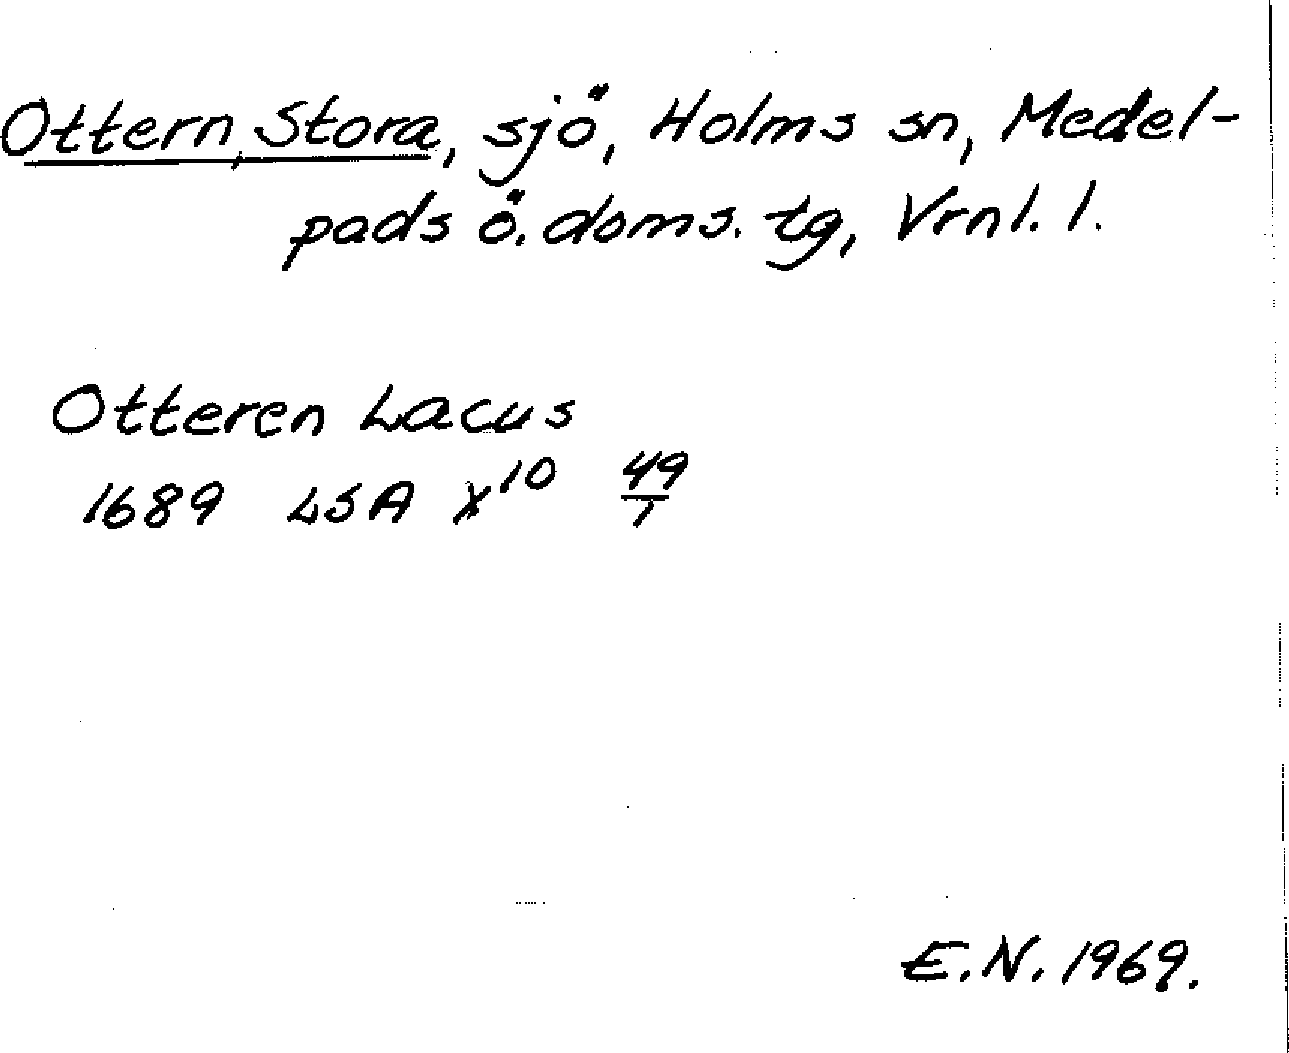 Ottern, Stora, sjö, Holms sn, Medel-
pads ö. doms. tg, Vrnl. l.
Otteren Lacus
1689 LSA X¹⁰ 49/1
E.N. 1969.